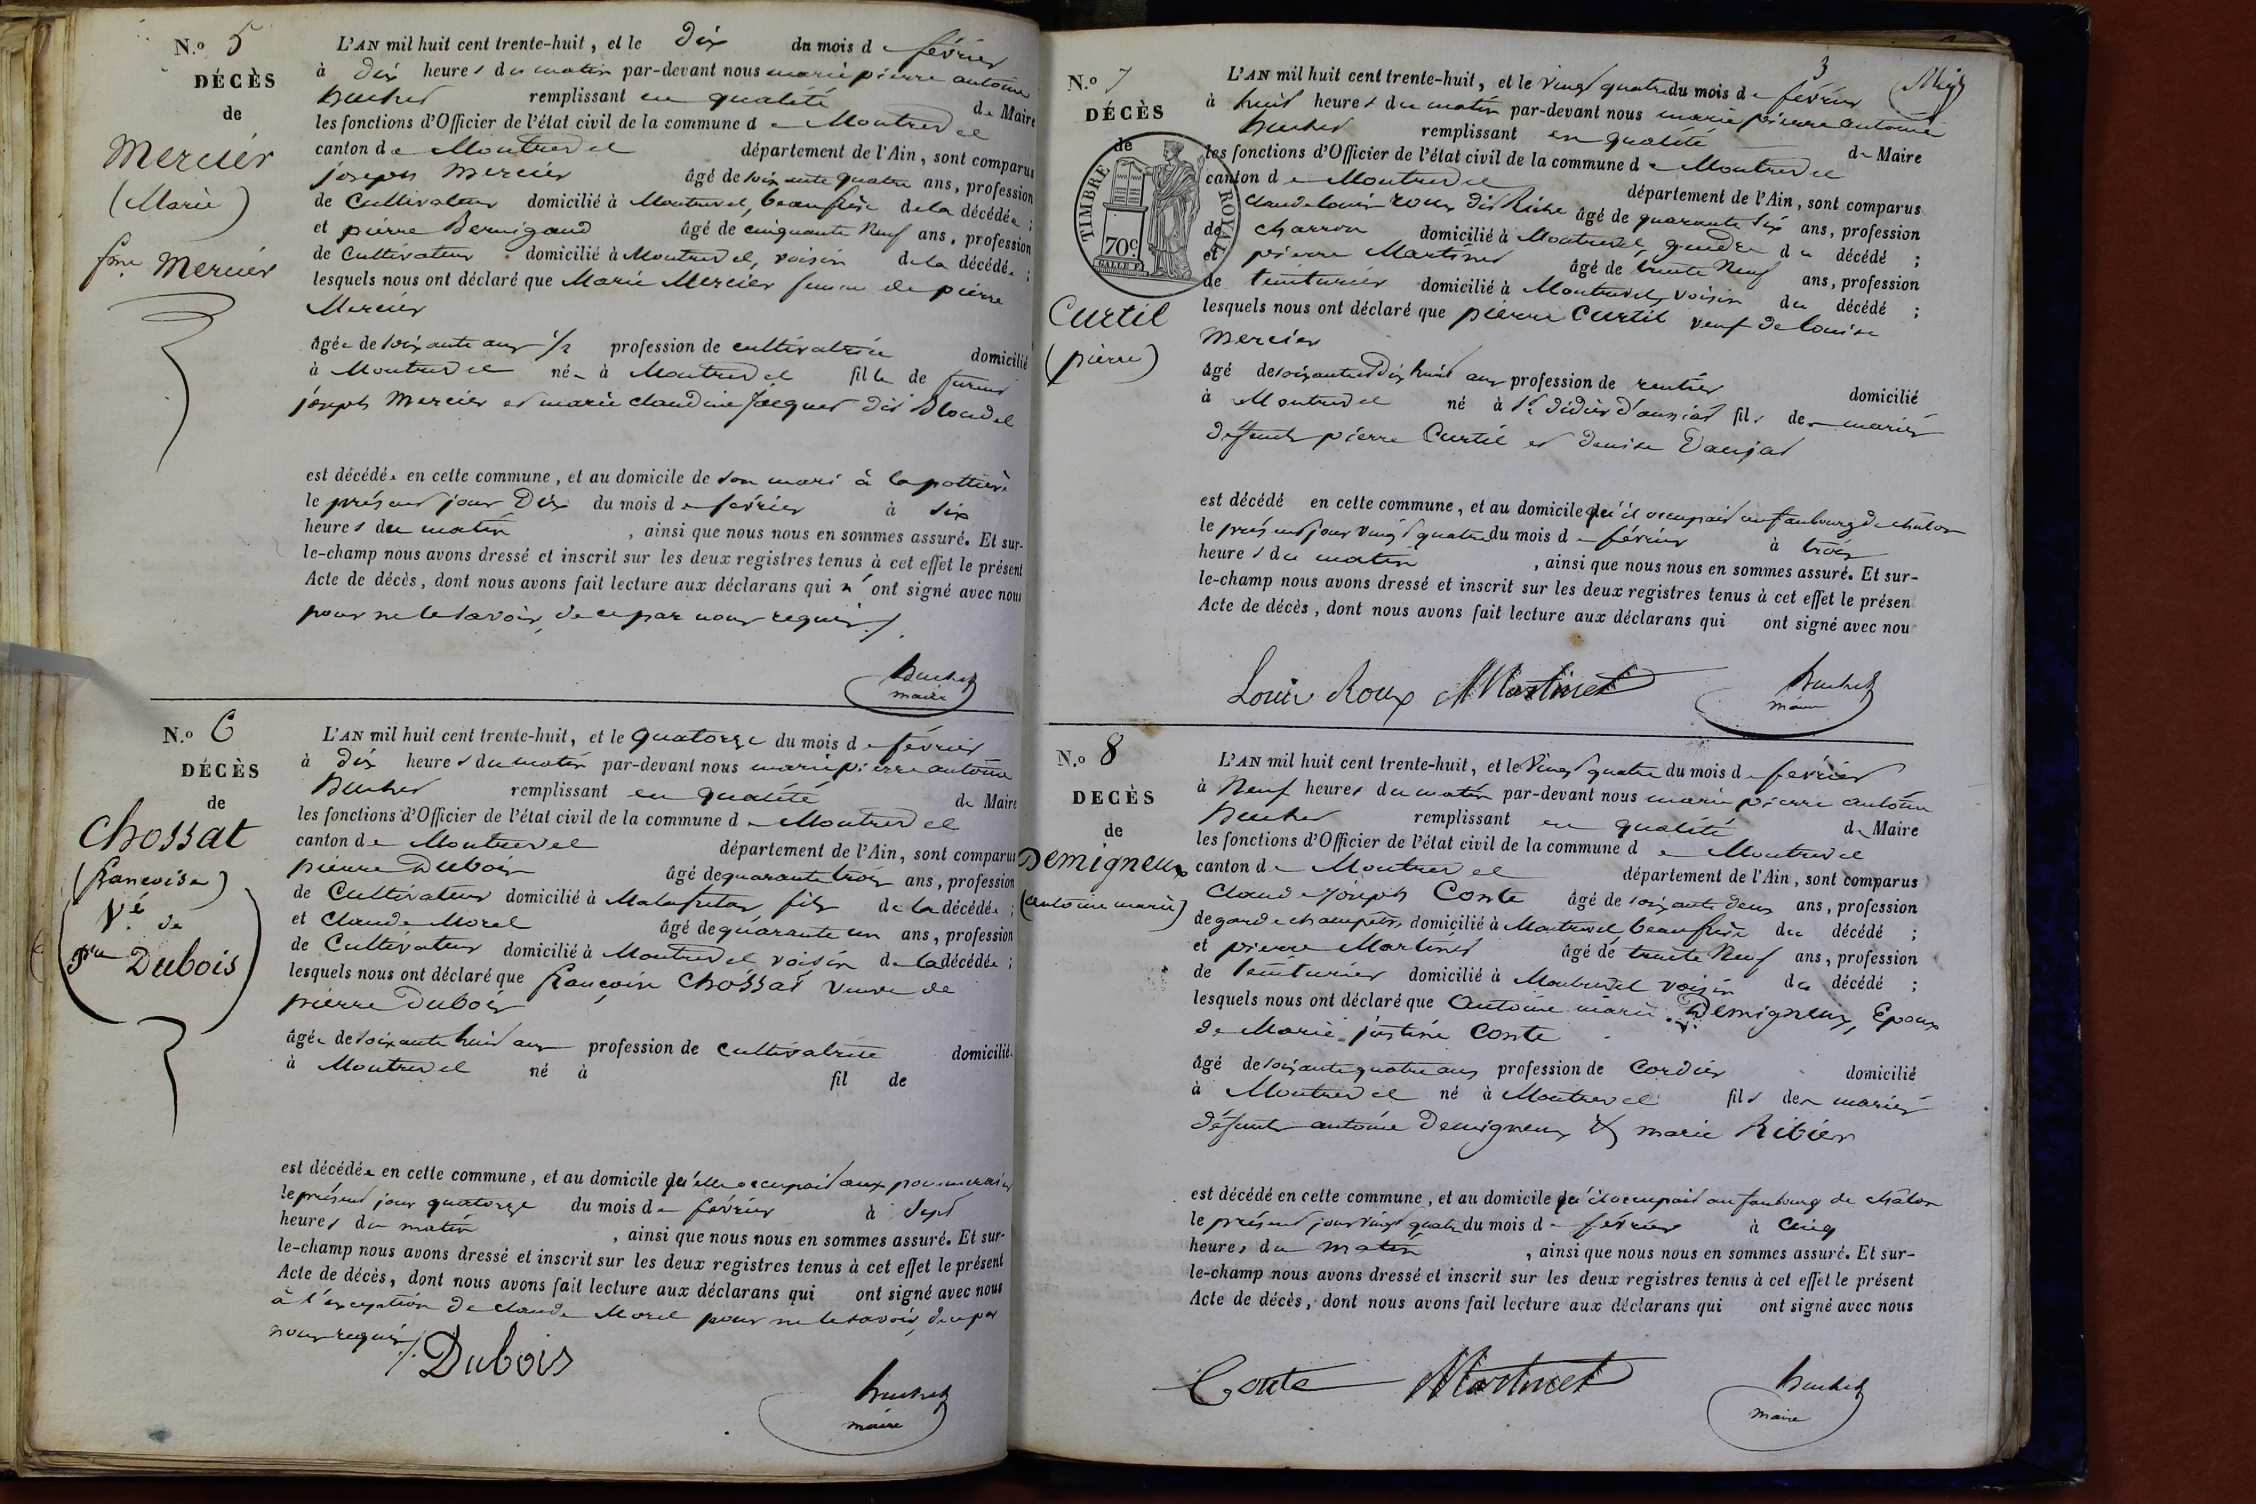 N.o 5
DÉCÈS
de
Mercier
(Marie)
fme Mercier
L'AN mil huit cent trente-huit, et le Dix du mois de février
à dix heures du matin par-devant nous marie pierre antoine
huchet remplissant en qualité de Maire
les fonctions d'Officier de l'état civil de la commune de Montrevel
canton de Montrevel département de l'Ain, sont comparus
joseph Mercier âgé de soixante quatre ans, profession
de Cultivateur domicilié à Montrevel, beaufrère de la décédée ;
et pierre Bernigaud âgé de cinquante Neuf ans, profession
de Cultivateur domicilié à Montrevel, voisin de la décédée ;
lesquels nous ont déclaré que Marie Mercier femme de pierre
Mercier
âgée de soixante ans 1/2 profession de cultivatrice domicilié
à Montrevel née à Montrevel fille de furent
joseph Mercier et marie claudine Jacquet dit Blondel
est décédée en cette commune, et au domicile de son mari à la pottière
le présent jour Dix du mois de février à six
heures du matin , ainsi que nous nous en sommes assuré. Et sur-
le-champ nous avons dressé et inscrit sur les deux registres tenus à cet effet le présent
Acte de décès, dont nous avons fait lecture aux déclarans qui n'ont signé avec nous
pour ne le savoir, de ce par nous requis ./.
huchet
maire
N.o 6
DÉCÈS
de
Chossat
(francoise)
Ve. de
Pre Dubois
L'AN mil huit cent trente-huit, et le quatorze du mois de février
à dix heures du matin par-devant nous marie pierre antoine
huchet remplissant en qualité de Maire
les fonctions d'Officier de l'état civil de la commune de Montrevel
canton de Montrevel département de l'Ain, sont comparus
pierre Dubois âgé de quarante trois ans, profession
de Cultivateur domicilié à Malafretaz fils de la décédée ;
et Claude Morel âgé de quarante un ans, profession
de Cultivateur domicilié à Montrevel, voisin de la décédée ;
lesquels nous ont déclaré que francoise Chossat veuve de
pierre Dubois
âgée de soixante huit ans profession de cultivatrice domiciliée
à Montrevel né à fil de
est décédée en cette commune, et au domicile qu'elle occupait aux
le présent jour quatorze du mois de février à sept
heures du matin , ainsi que nous nous en sommes assuré. Et sur-
le-champ nous avons dressé et inscrit sur les deux registres tenus à cet effet le présent
Acte de décès, dont nous avons fait lecture aux déclarans qui ont signé avec nous
à l'exception de claude Morel pour ne le savoir, de ce par
nous requis ./.
Dubois
huchet
maire
3
N.o 7
DÉCÈS
de
TIMBRE ROYAL
70c.
Curtil
(pierre)
L'AN mil huit cent trente-huit, et le vingt quatre du mois de février
à huit heures du matin par-devant nous marie pierre antoine
huchet remplissant en qualité de Maire
les fonctions d'Officier de l'état civil de la commune de Montrevel
canton de Montrevel département de l'Ain, sont comparus
claude louis roux dit Riche âgé de quarante six ans, profession
de charron domicilié à Montrevel, gendre du décédé ;
et pierre Martinet âgé de trente Neuf ans, profession
de teinturier domicilié à Montrevel, voisin du décédé ;
lesquels nous ont déclaré que pierre Curtil veuf de louise
Mercier
âgé de soixante dix huit ans profession de rentier domicilié
à Montrevel né à St didier d'aussiat fils des mariés
défunts pierre Curtil et Denise Danjat
est décédé en cette commune, et au domicile qu'il occupait au faubourg de châlon
le présent jour vingt quatre du mois de février à trois
heures du matin , ainsi que nous nous en sommes assuré. Et sur-
le-champ nous avons dressé et inscrit sur les deux registres tenus à cet effet le présen
Acte de décès, dont nous avons fait lecture aux déclarans qui ont signé avec nou
Louis Roux Martinet huchet
maire
N.o 8
DECÈS
de
Demigneux
(antoine marie)
L'AN mil huit cent trente-huit, et le vingt quatre du mois de fevrier
à Neuf heures du matin par-devant nous marie pierre antoine
huchet remplissant en qualité de Maire
les fonctions d'Officier de l'état civil de la commune de Montrevel
canton de Montrevel département de l'Ain, sont comparus
Claude joseph Conte âgé de soixante deux ans, profession
de garde champêtre domicilié à Montrevel beaufrère du décédé ;
et pierre Martinet âgé de trente Neuf ans, profession
de teinturier domicilié à Montrevel voisin du décédé ;
lesquels nous ont déclaré que Antoine marie Demigneux, Epoux
de Marie justine Conte
âgé de soixante quatre ans profession de Cordier domicilié
à Montrevel né à Montrevel fils des mariés
défunts antoine Demigneux & marie Ribier
est décédé en cette commune, et au domicile qu'il occupait au faubourg de châlon
le présent jour vingt quatre du mois de février à cinq
heures du matin , ainsi que nous nous en sommes assuré. Et sur-
le-champ nous avons dressé et inscrit sur les deux registres tenus à cet effet le présent
Acte de décès, dont nous avons fait lecture aux déclarans qui ont signé avec nous
Conte Martinet huchet
maire